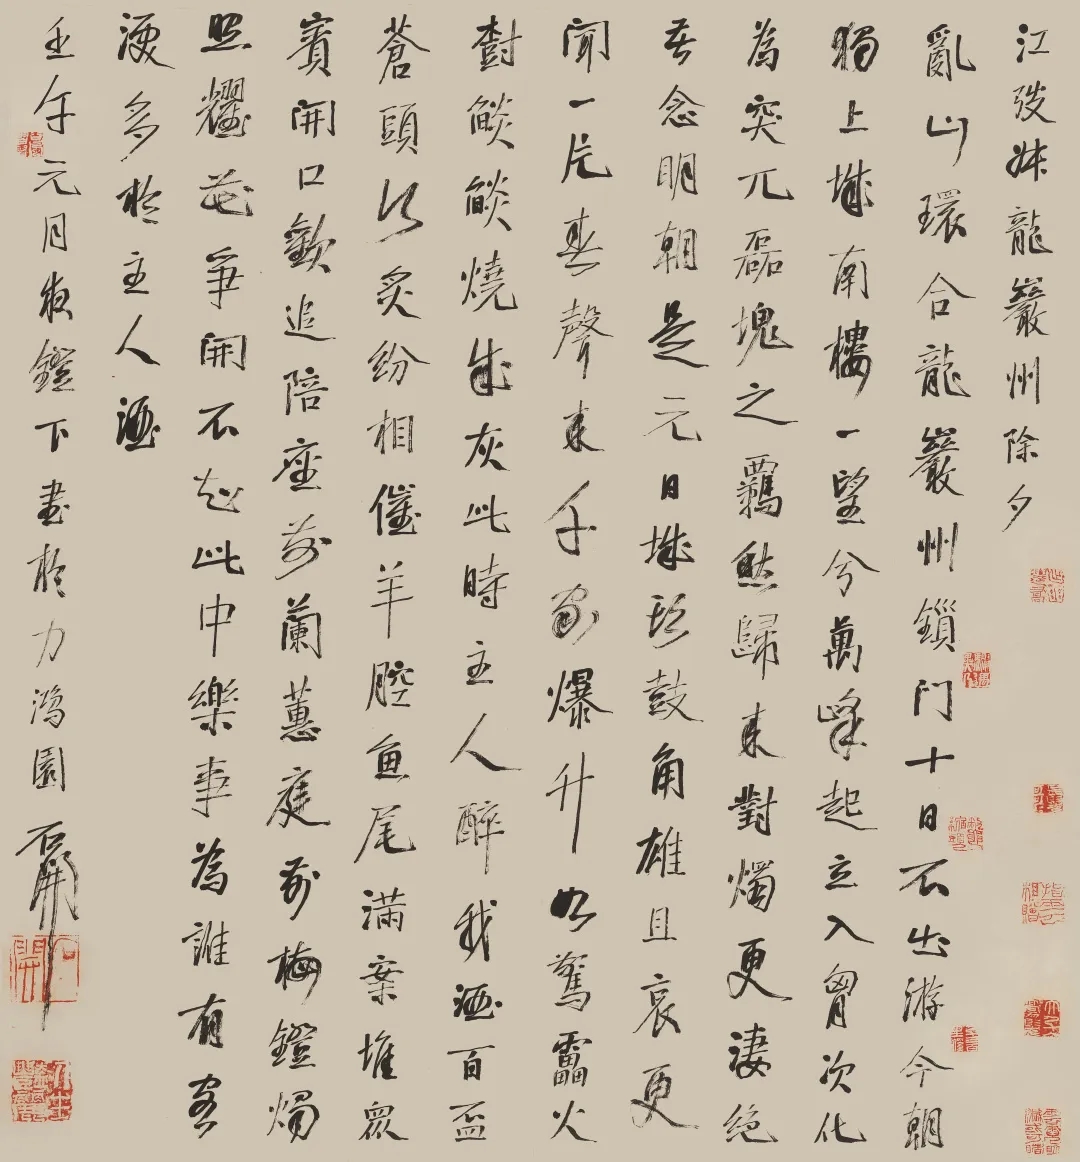 江弢叔龍巖州除夕
亂山環合龍巖州鎖门十日不出游今朝
獨上城南樓一望兮萬峰起立入胸次化
為突兀磊塊之羈愁歸来對燭更淒絶
長念明朝是元日城頭鼓角雄且哀更
聞一片春聲来千家爆竹如驚雷火
樹燄燄燒成灰此時主人醉我酒百盃
蒼頭行炙紛相催羊腔魚尾滿案堆眾
賓開口歡追陪座前蘭蕙庭前梅鐙燭
照耀花争開不知此中樂事為誰有客
淚多於主人酒
壬午元月夜鐙下書於力鴻園 石開